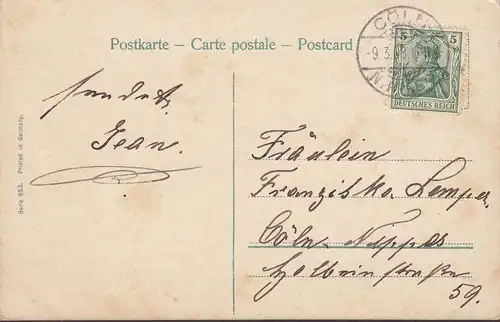 Postkarte – Carte postale – Postcard
CÖLN
-9.3.
5 5
DEUTSCHES REICH
sendet
Jean.
Fräulein
Franziska Lemper
Cöln-Nippes
Holbeinstraße
59.
Serie 653. Printed in Germany.